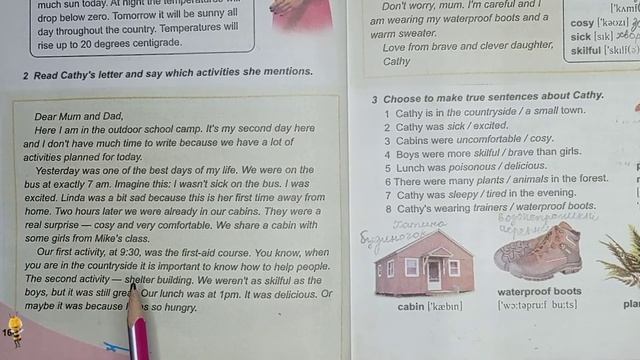 much sun today. At night the temperatures will
drop below zero. Tomorrow it will be sunny all
day throughout the country. Temperatures will
rise up to 20 degrees centigrade.
2 Read Cathy's letter and say which activities she mentions.
Dear Mum and Dad,
Here I am in the outdoor school camp. It's my second day here
and I don't have much time to write because we have a lot of
activities planned for today.
Yesterday was one of the best days of my life. We were on the
bus at exactly 7 am. Imagine this: I wasn't sick on the bus. I was
excited. Linda was a bit sad because this is her first time away from
home. Two hours later we were already in our cabins. They were a
real surprise — cosy and very comfortable. We share a cabin with
some girls from Mike's class.
Our first activity, at 9:30, was the first-aid course. You know, when
you are in the countryside it is important to know how to help people.
The second activity — shelter building. We weren't as skilful as the
boys, but it was still Our lunch was at 1pm. It was delicious. Or
maybe it was because so hungry.
16
Don't worry, mum. I'm careful and I
am wearing my waterproof boots and a
warm sweater.
Love from brave and clever daughter,
Cathy
cosy ['kəʊzi]
sick [sɪk]
skilful
3 Choose to make true sentences about Cathy.
1 Cathy is in the countryside / a small town.
2 Cathy was sick / excited.
3 Cabins were uncomfortable / cosy.
4 Boys were more skilful / brave than girls.
5 Lunch was poisonous / delicious.
6 There were many plants / animals in the forest.
7 Cathy was sleepy / tired in the evening.
8 Cathy's wearing trainers / waterproof boots.
cabin ['kæbɪn]
waterproof boots
['wɔ:təpru:f bu:ts]